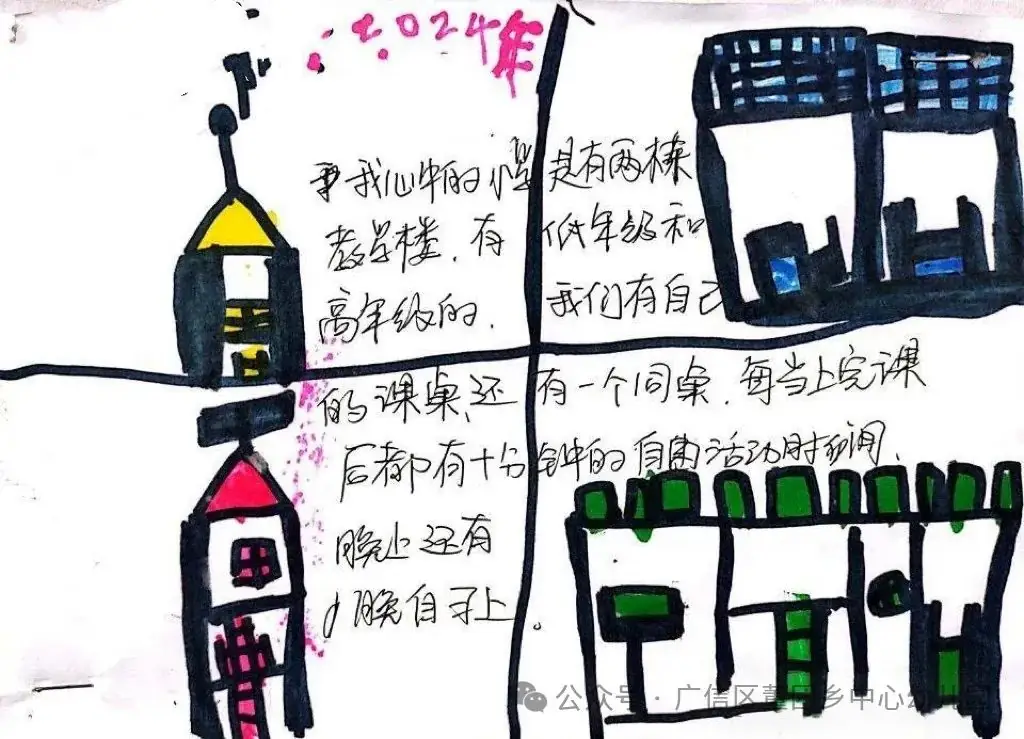 2024年
我心中的小学是有两栋
教学楼.有低年级和
高年级的.我们有自己
的课桌、还有一个同桌.每当上完课
后都有十分钟的自由活动时间.
晚上还有
晚自习上。
公众号·广信区董田乡中心幼儿园